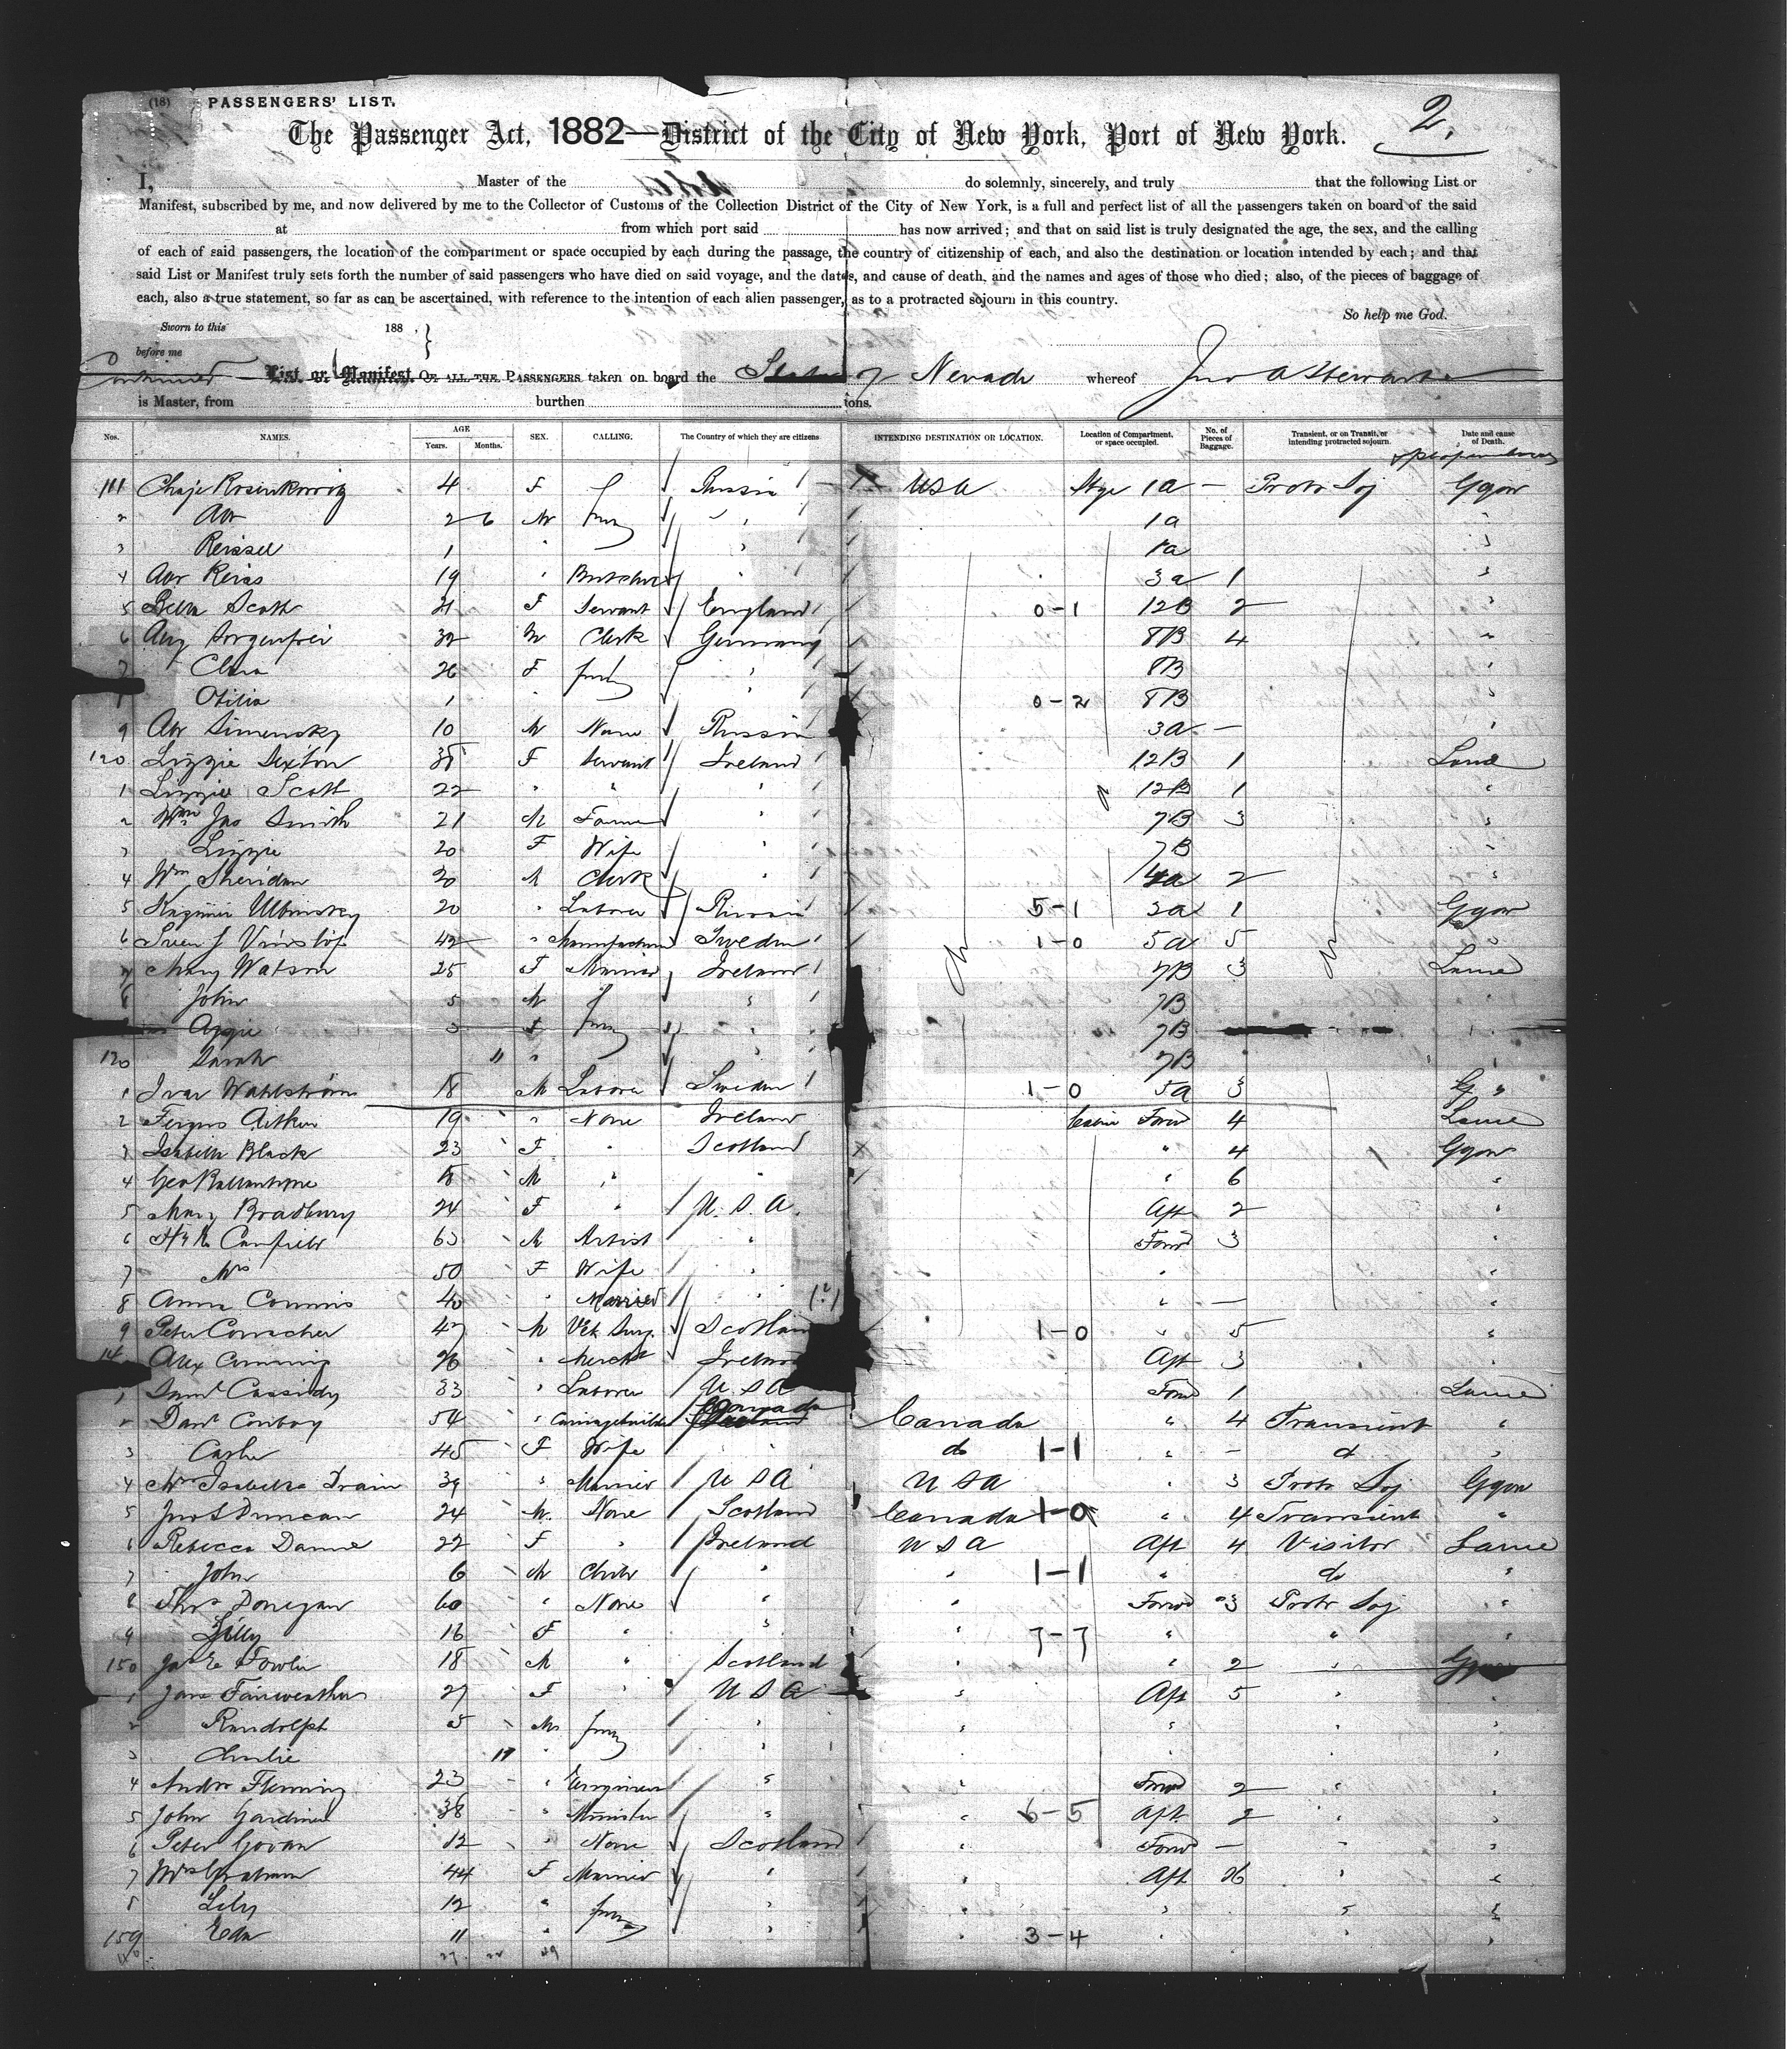 (18) PASSENGERS' LIST.
2.
The Passenger Act, 1882—District of the City of New York, Port of New York.
I, Master of the do solemnly, sincerely, and truly that the following List or
Manifest, subscribed by me, and now delivered by me to the Collector of Customs of the Collection District of the City of New York, is a full and perfect list of all the passengers taken on board of the said
at from which port said has now arrived; and that on said list is truly designated the age, the sex, and the calling
of each of said passengers, the location of the compartment or space occupied by each during the passage, the country of citizenship of each, and also the destination or location intended by each; and that
said List or Manifest truly sets forth the number of said passengers who have died on said voyage, and the dates, and cause of death, and the names and ages of those who died; also, of the pieces of baggage of
each, also a true statement, so far as can be ascertained, with reference to the intention of each alien passenger, as to a protracted sojourn in this country.
So help me God.
Sworn to this 188 .
before me
Continued List or Manifest OF ALL THE PASSENGERS taken on board the State of Nevada whereof Jno A Stewart
is Master, from burthen tons.
Nos. NAMES. AGE Years. Months. SEX. CALLING. The Country of which they are citizens INTENDING DESTINATION OR LOCATION. Location of Compartment, or space occupied. No. of Pieces of Baggage. Transient, or on Transit, or intending protracted sojourn. Date and cause of Death.
111 Chaje 4 F Russia USA Stge 1a — Protr Soj Ggow
2 Abr 2 6 M 1a
3 1 1a
4 Abr Reiss 19 Butcher 3a 1
5 Bella Scott 21 F Servant England 0-1 12B 2
6 Aug Sorgenfrei 32 M Clerk Germany 8B 4
7 Clara 26 F 8B
8 Otilia 1 0-2 8B
9 Abr Simensky 10 M None Russia 3a —
120 Lizzie Sexton 35 F Servant Ireland 12B 1 Larne
1 Lizzie Scott 22 " " 12B 1
2 Wm Jas Smith 21 M Farmer 7B 3
3 Lizzie 20 F Wife 7B
4 Wm Sheridan 20 M Clerk 4a 2
5 20 Laborer Russia 5-1 3a 1 Ggow
6 Sven J 42 Sweden 1-0 5a 5
7 Mary Watson 25 F Married Ireland 7B 3 Larne
8 John 5 M 7B
Aggie 3 F 7B
130 Sarah 11 " 7B
1 Ivar Wahlström 18 M Laborer Sweden 1-0 5a 3 G "
2 Fergus Aitken 19 " None Ireland Cabin Forwd 4 Larne
3 Isabella Black 23 F " Scotland " 4 Ggow
4 Geo Ballantyne 18 M " " 6
5 Mary Bradbury 24 F " U.S.A. Aft 2
6 63 M Artist " Forwd 3
7 Mrs 50 F Wife "
8 Anna 40 " Married " " —
9 Peter Conacher 47 M Vet Surg. Scotland 1-0 " 5
Alex Cumming 26 " Mercht Ireland Aft 3
1 Saml Cassidy 33 " Laborer U S A Forwd 1 Larne
2 Danl Conboy 54 " Carriagebuilder Canada Canada " 4 Transient "
3 45 F Wife " do 1-1 " — do "
4 Mrs Isabella Train 39 " Married U S A U S A " 3 Protr Soj Ggow
5 Jno S Duncan 24 M. None Scotland Canada 1-0 " 4 Transient "
6 Rebecca 22 F " Ireland U S A Aft 4 Visitor Larne
7 John 6 M Child " " 1-1 " do "
8 Thos Donegan 60 " None " " Forwd 3 Protr Soj "
9 Lilly 16 F " " " 7-7 " " "
150 Jas E Fowler 18 M " Scotland " " 2 " Ggow
1 Jane Fairweather 27 F " U S A " Aft 5 "
2 Randolph 5 M " " "
3 Charlie 11 " "
4 Andw Fleming 23 " Engineer " " Forwd 2 "
5 John Gardiner 38 " Minister " " 6-5 Aft 2 "
6 Peter Govan 12 " None Scotland " Forwd — "
7 Mrs Graham 44 F Married " " Aft 26 "
8 Lily 12 " " " "
159 Edn 11 " " " 3-4 "